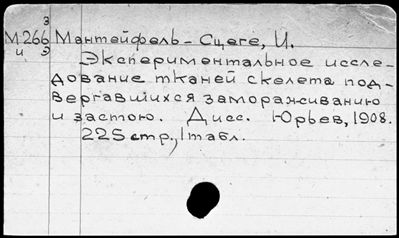 3
М 266 Мантейфель - Сцеге, И.
и Э Экспериментальное иссле-
дование тканей скелета под-
вергавшихся замораживанию
и застою. Дисс. Юрьев, 1908.
225 стр., 1 табл.